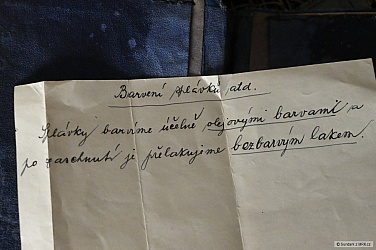 Barvení splávků atd.
Splávky barvíme účelně olejovými barvami a
po zaschnutí je přelakujeme bezbarvým lakem.